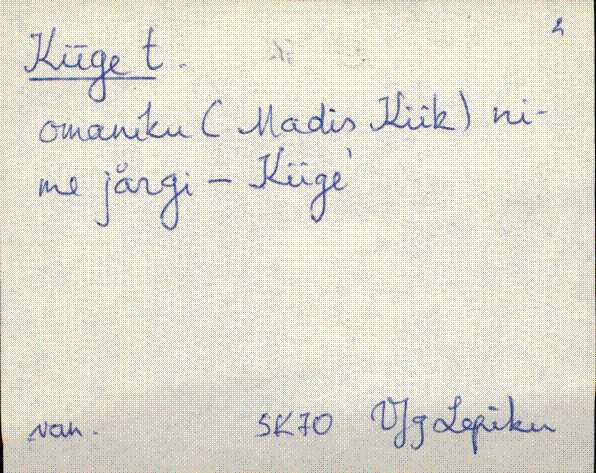 2
Kiige t.
omaniku (Madis Kiik) ni-
me järgi – Kiige'
van. SK70 Vjg Lepiku